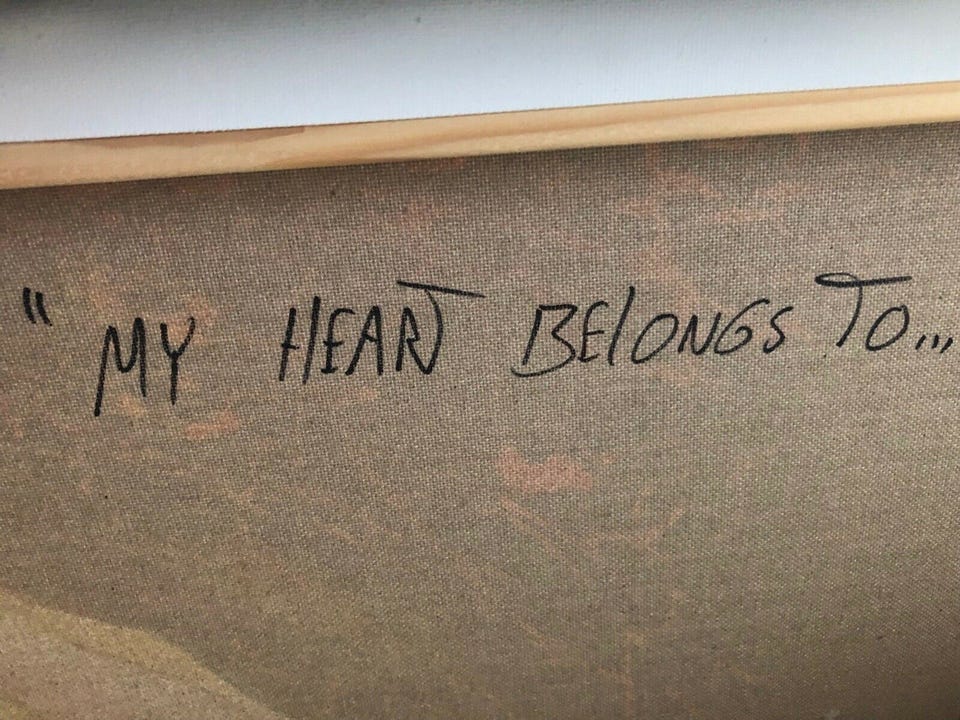 " MY HEART BELONGS TO...